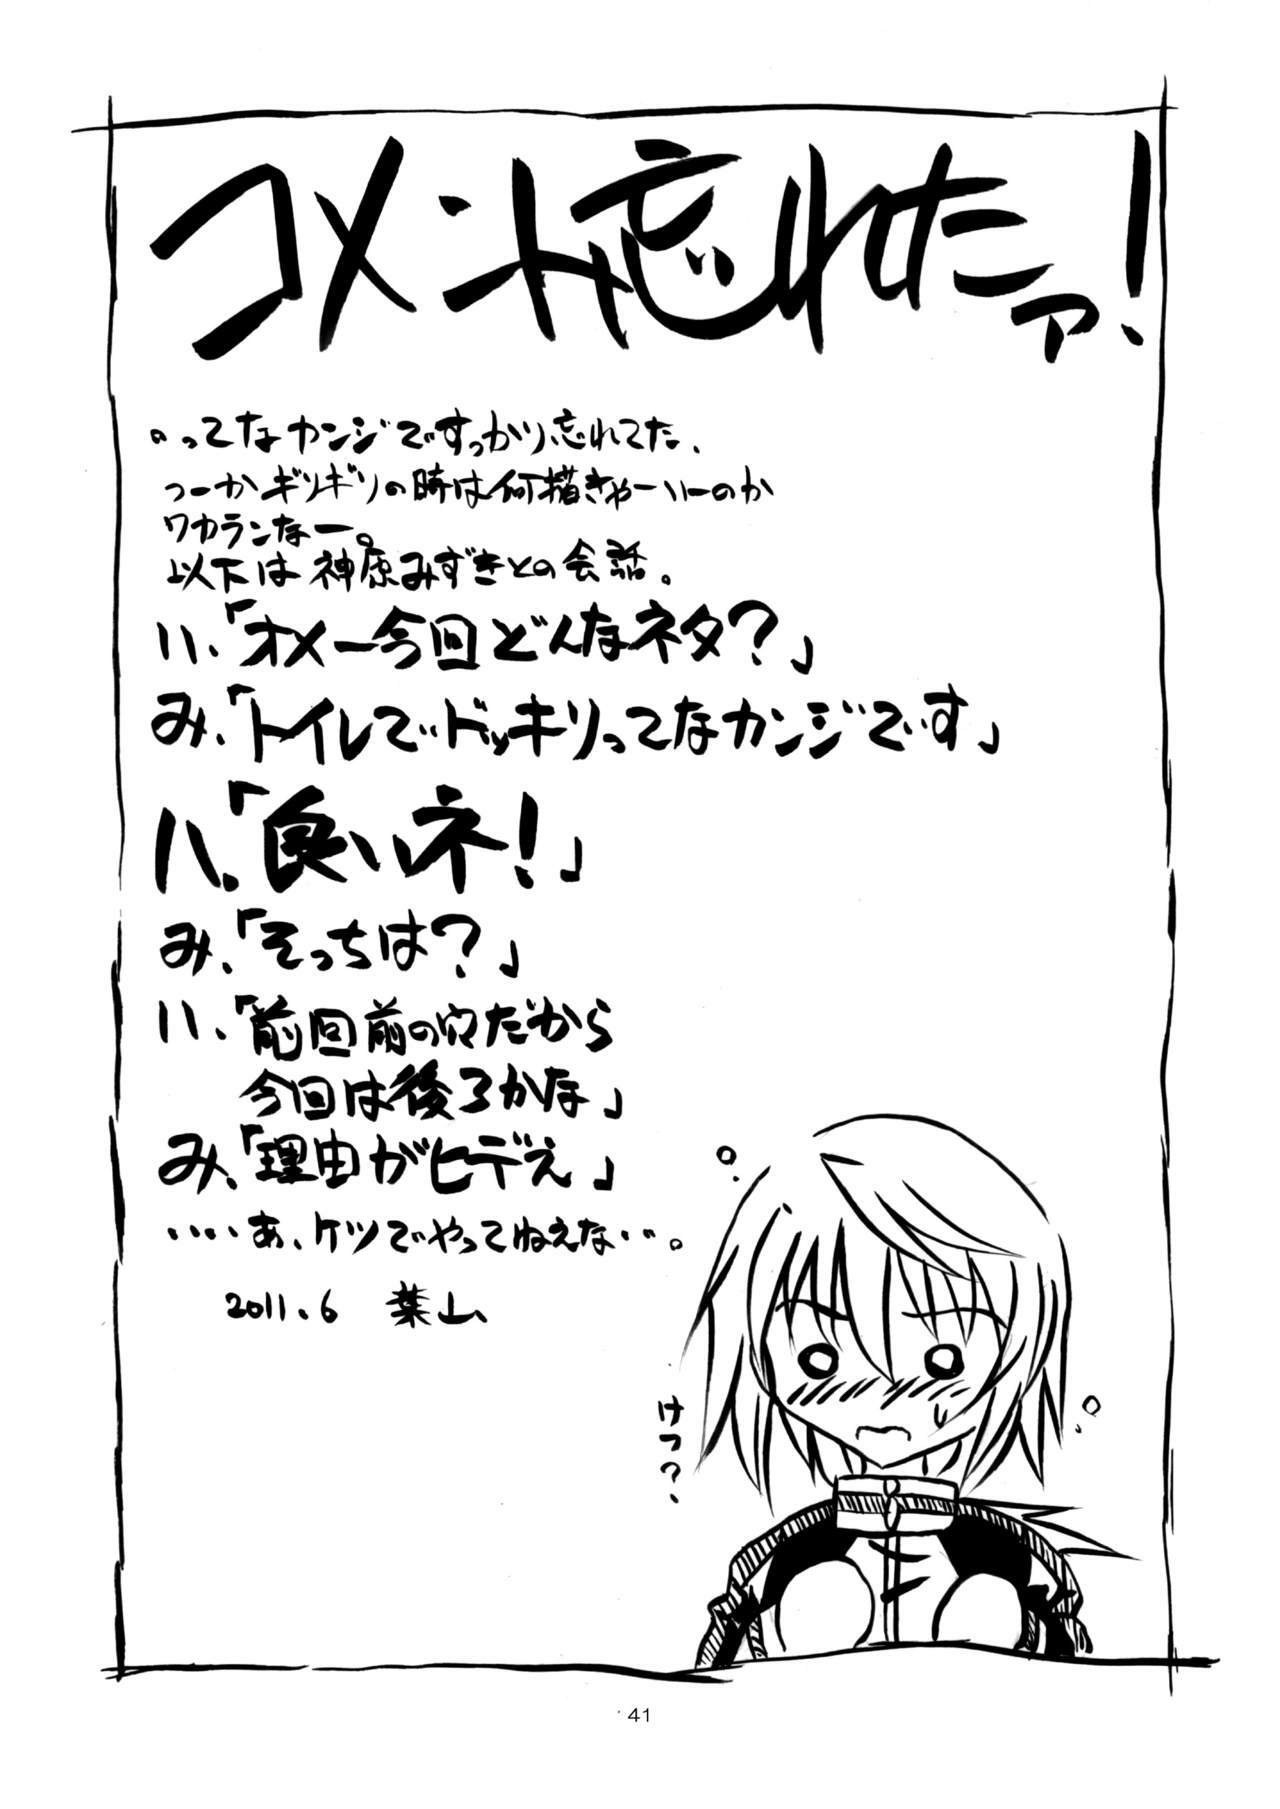 コメント忘れたァ!
・ってなカンジですっかり忘れてた、
つーかギリギリの時は何描きゃーいーのか
ワカランなー。
以下は神原みずきとの会話。
ハ、「オメー今回どんなネタ?」
み、「トイレでドッキリってなカンジです」
ハ、「良いネ!」
み、「そっちは?」
ハ、「前回前の穴だから
今回は後ろかな」
み、「理由がヒデえ」
‥‥あ、ケツでやってねえな‥。
2011.6 葉山
けつ?
41